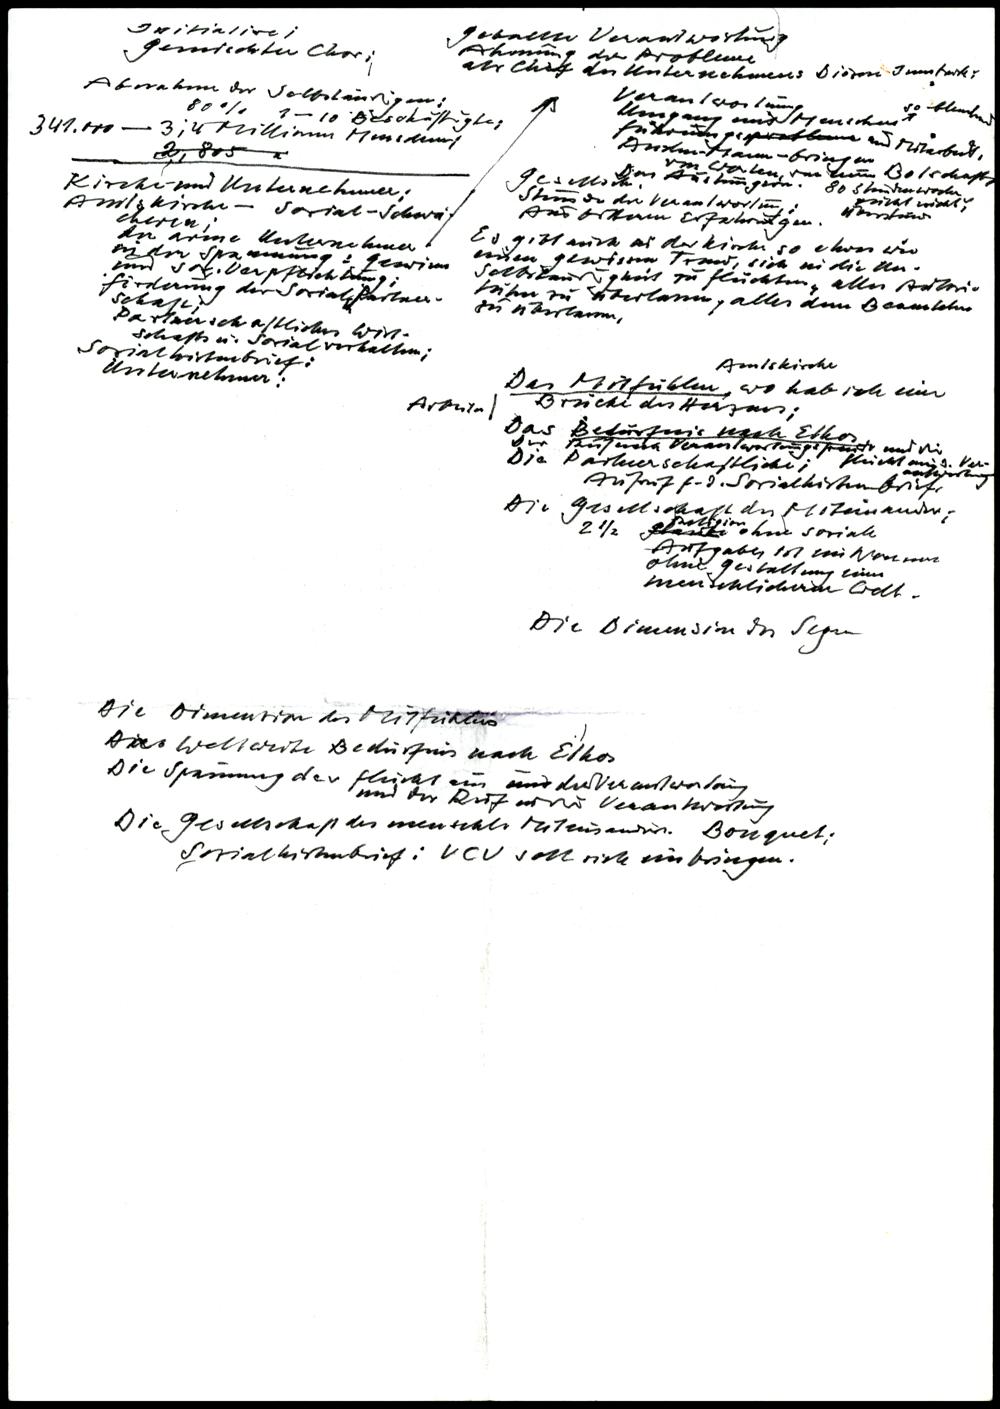 Initiative;
Gemischter Chor;
Abnahme der Selbständigen;
80% 1–10 Beschäftigte;
341.000 — 3,4 Millionen Menschen;
2,805
Kirche und Unternehmer;
Amtskirche — Sozial-Schwä-
cheren;
der arme Unternehmer
in der Spannung: Gewinn
und Soz. Verpflichtung;
Förderung der Sozialpartner-
schaft;
Partnerschaftliches Wirt-
schafts u. Sozialverhalten;
Sozialhirtenbrief:
Unternehmer:
Geballte Verantwortung
Ahnung der Probleme
als Chef des Unternehmens Diözese Innsbruck;
Verantwortung
Umgang mit Menschen
Führungsprobleme und Mitarbeit.
An den Mann bringen
von Worten, von einer Botschaft
Das Aushungern. 80 Stundenwoche
Gesellsch.
nicht nicht;
Stunde der Verantwortung;
Aus bitteren Erfahrungen.
Es gibt auch in der Kirche so etwas wie
einen gewissen Trend, sich in die Un-
selbständigkeit zu flüchten, alles Autori-
täten zu überlassen, alles dem Beamteten
zu überlassen,
Amtskirche
Das Mitfühlen, wo hab ich eine
Brücke des Herzens;
Das Bedürfnis nach Ethos
Die Partnerschaftliche; Flucht aus d. Ver-
antwortung
Aufruf f. d. Sozialhirtenbrief
Die Gesellschaft des Miteinander;
2 1/2 Religion
Glaube ohne soziale
Aufgabe ist ein
ohne Gestaltung einer
menschlicheren Welt.
Die Dimension des Segen
Die Dimension des Mitfühlens
Das weltweite Bedürfnis nach Ethos
Die Spannung der Flucht aus und der Verantwortung
und der Ruf in die Verantwortung
Die Gesellschaft des menschl. Miteinander. Bouquet;
Sozialhirtenbrief: VCU soll sich einbringen.